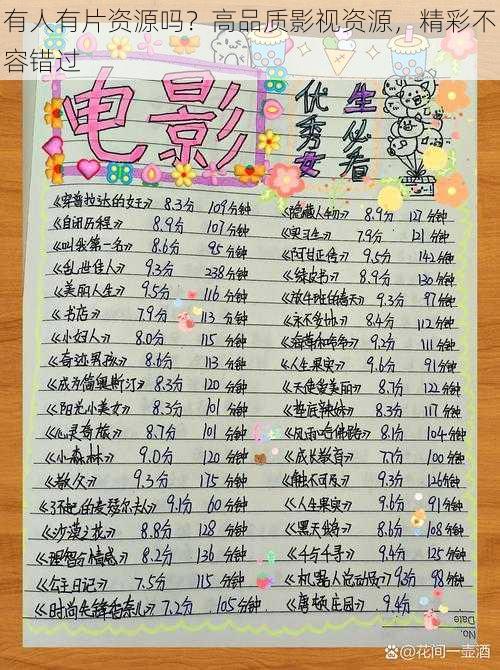 有人有片资源吗？高品质影视资源，精彩不
容错过
电影
优秀女
生必看
《穿普拉达的女王》 8.3分 109分钟
《自闭历程》 8.9分 107分钟
《叫我第一名》 8.6分 95分钟
《乱世佳人》 9.3分 238分钟
《美丽人生》 9.5分 116分钟
《书店》 7.9分 113分钟
《小妇人》 8.0分 115分钟
《奇迹男孩》 8.6分 113分钟
《成为简奥斯汀》 8.3分 120分钟
《阳光小美女》 8.3分 101分钟
《心灵奇旅》 8.7分 101分钟
《小森林》 9.0分 120分钟
《教父》 9.3分 175分钟
《了不起的麦瑟尔夫人》 9.1分 60分钟
《沙漠之花》 8.8分 128分钟
《理智与情感》 8.2分 136分钟
《公主日记》 7.5分 115分钟
《时尚先锋香奈儿》 7.2分 105分钟
《隐藏人物》 8.9分 127分钟
《实习生》 7.9分 121分钟
《阿甘正传》 9.5分 142分钟
《绿皮书》 8.9分 130分钟
《放牛班的春天》 9.3分 97分钟
《永不妥协》 8.4分 112分钟
《海蒂和爷爷》 9.2分 111分钟
《人生果实》 9.6分 91分钟
《天使爱美丽》 8.7分 122分钟
《垫底辣妹》 8.3分 117分钟
《风雨哈佛路》 8.1分 104分钟
《成长教育》 7.7分 100分钟
《触不可及》 9.3分 126分钟
《人生果实》 9.6分 91分钟
《黑天鹅》 8.6分 108分钟
《千与千寻》 9.4分 125分钟
《机器人总动员》 9.3分 98分钟
《唐顿庄园》 9.4分
Date
No.
@花间一壶酒